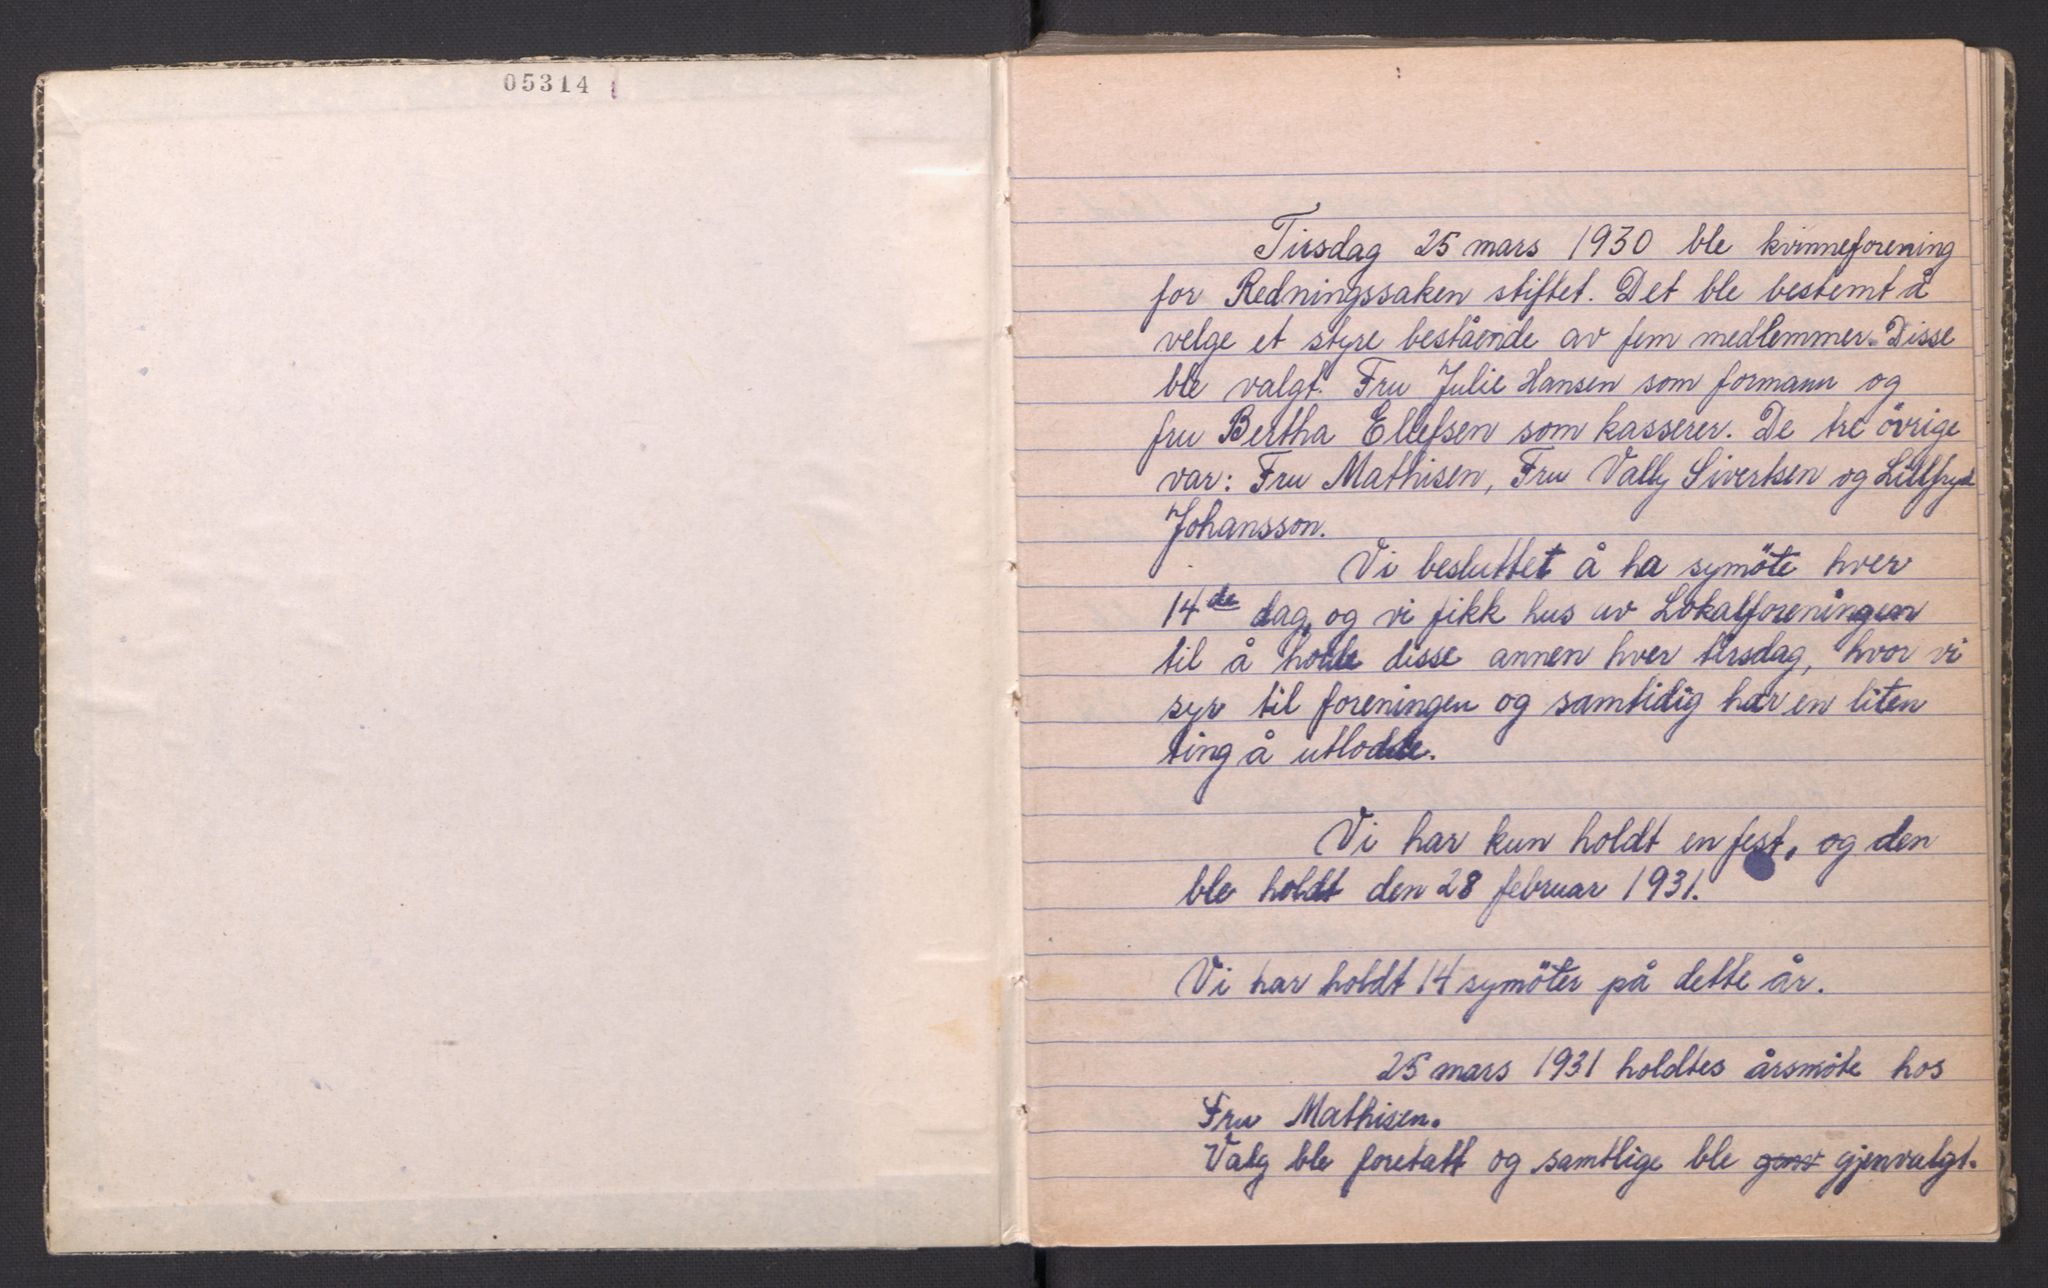 05314
Tirsdag 25 mars 1930 ble kvinneforening
for Redningssaken stiftet. Det ble bestemt å
velge et styre bestående av fem medlemmer. Disse
ble valgt. Fru Julie Hansen som formann og
fru Bertha Ellefsen som kasserer. De tre övrige
var: Fru Mathisen, Fru Vally Sivertsen og Lillfryd
Johansson.
Vi besluttet å ha symöte hver
14de dag, og vi fikk hus av Lokalforeningen
til å holde disse annen hver tirsdag, hvor vi
syr til foreningen og samtidig har en liten
ting å utlodde.
Vi har kun holdt en fest, og den
ble holdt den 28 februar 1931.
Vi har holdt 14 symöter på dette år.
25 mars 1931 holdtes årsmöte hos
Fru Mathisen.
Valg ble foretatt og samtlige ble gjenvalgt.